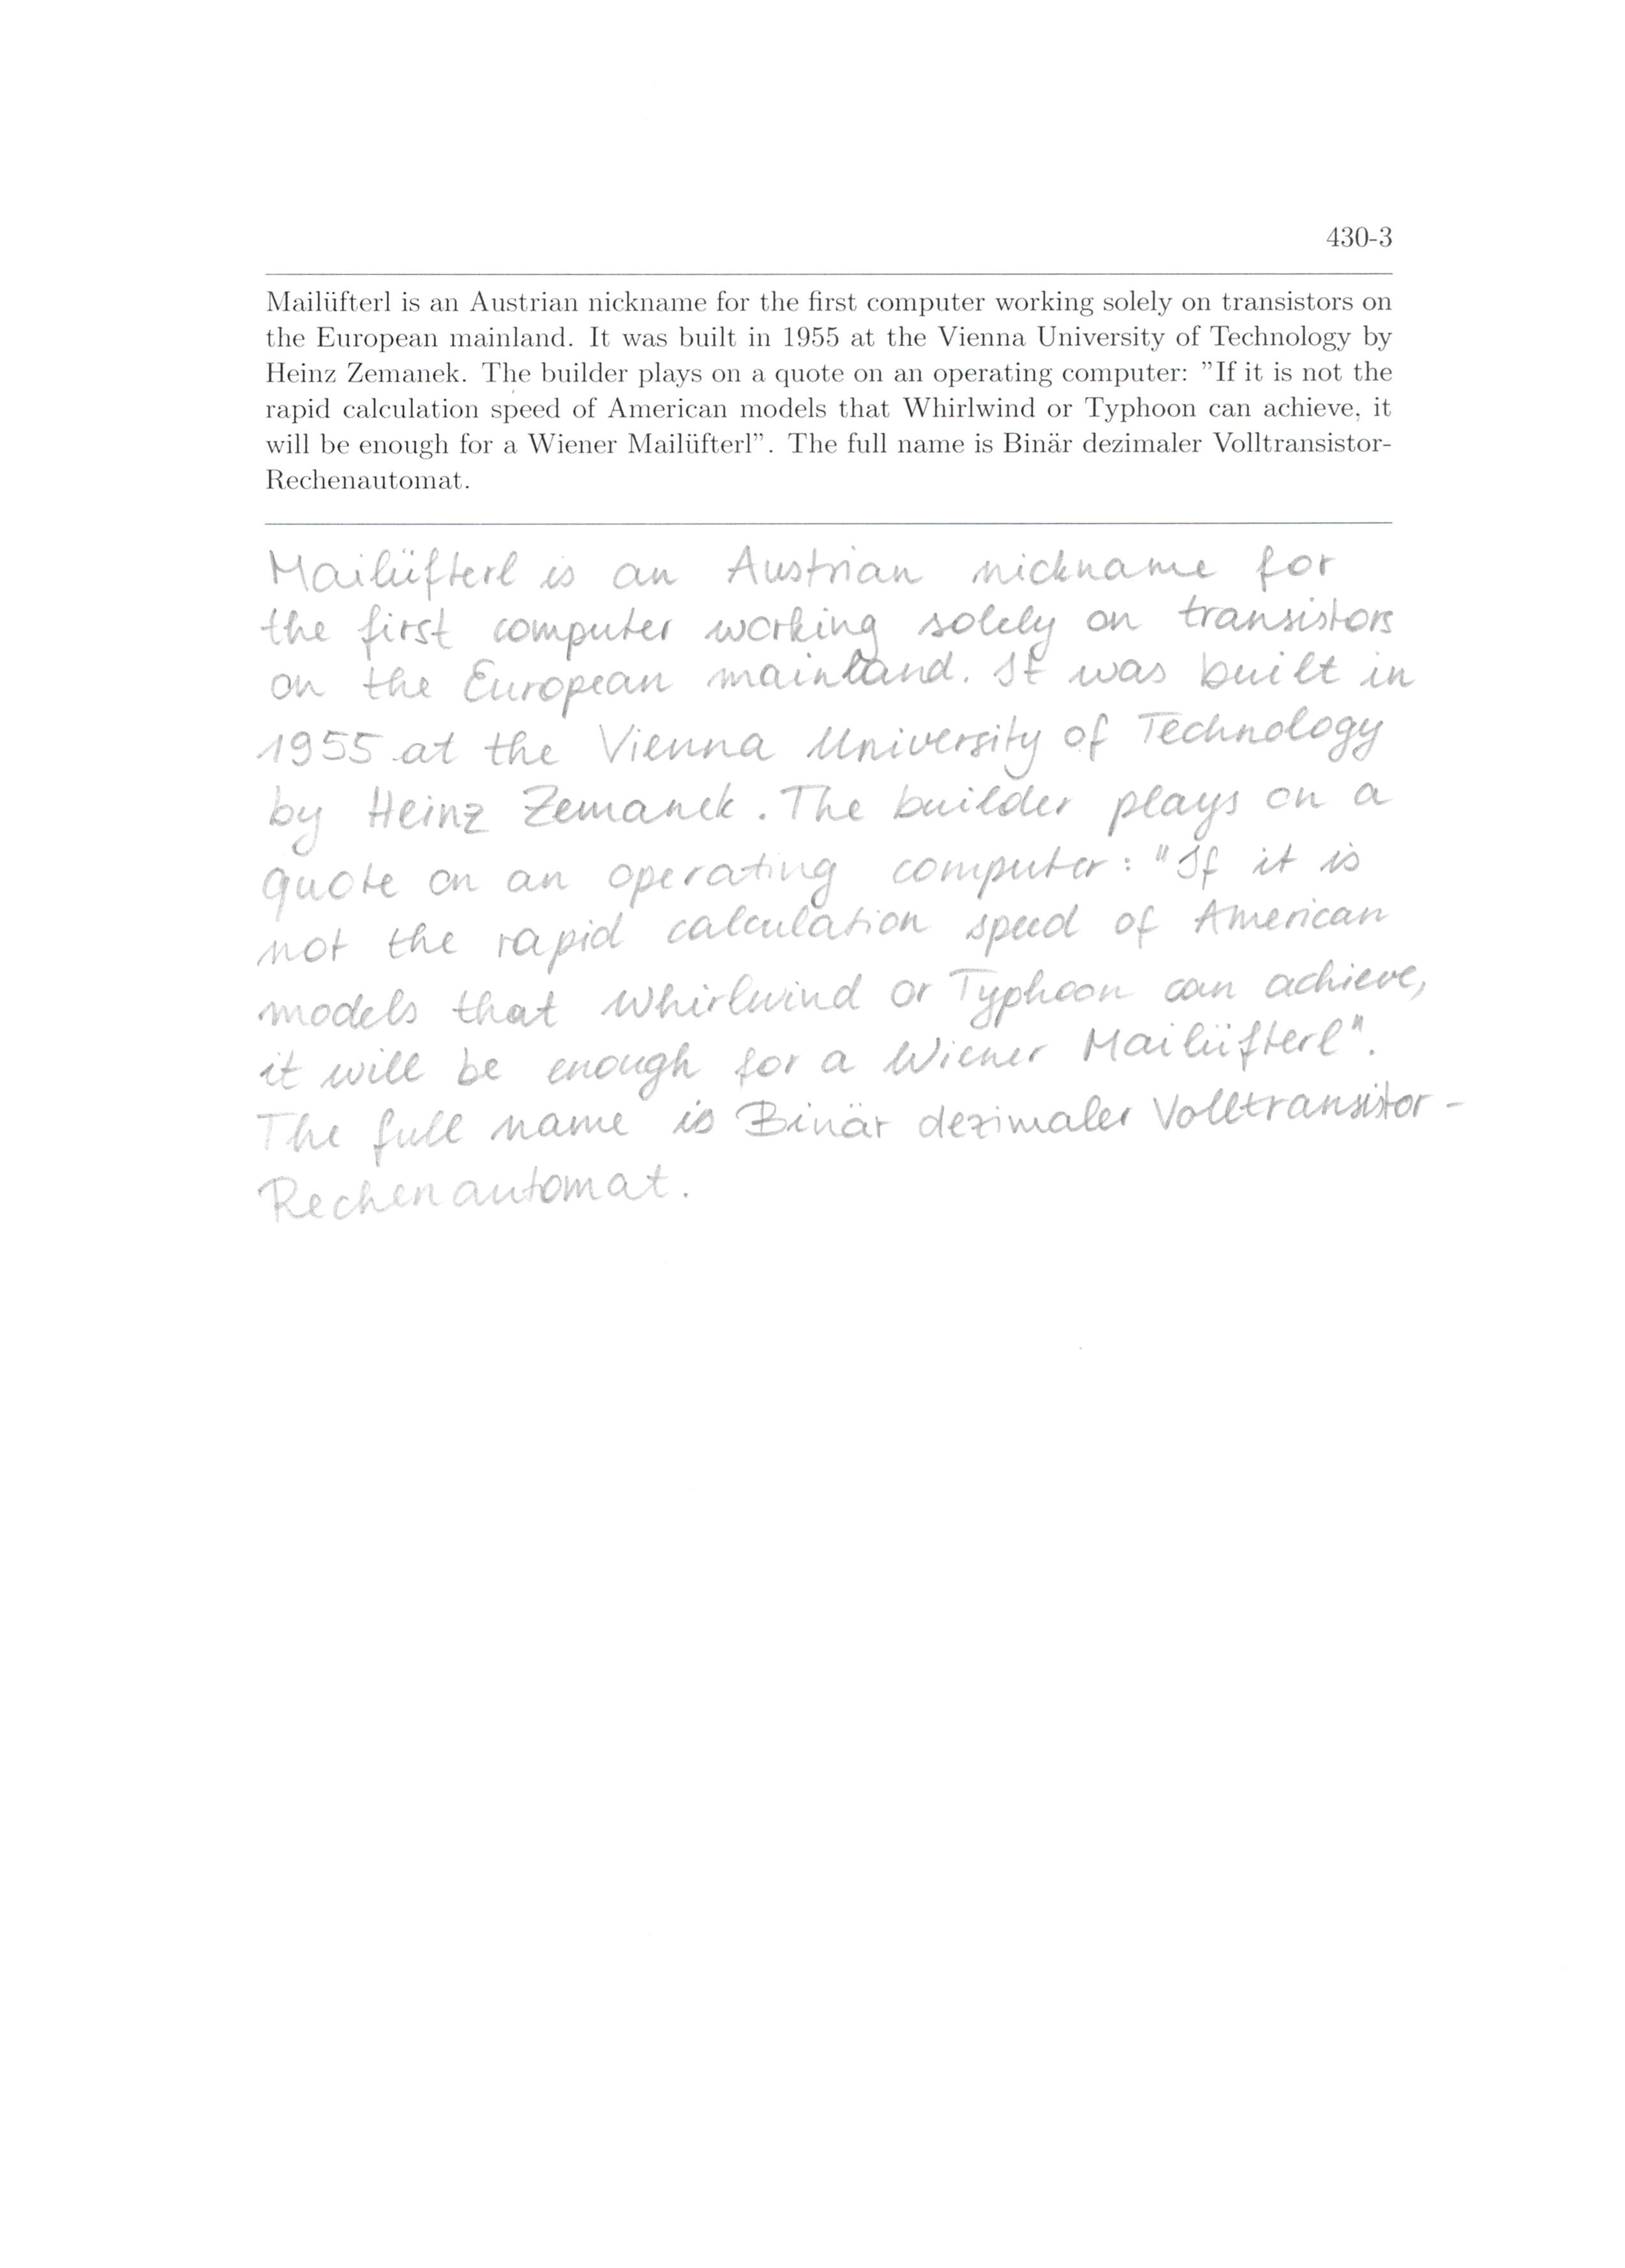 430-3
Mailüfterl is an Austrian nickname for the first computer working solely on transistors on
the European mainland. It was built in 1955 at the Vienna University of Technology by
Heinz Zemanek. The builder plays on a quote on an operating computer: ”If it is not the
rapid calculation speed of American models that Whirlwind or Typhoon can achieve, it
will be enough for a Wiener Mailüfterl”. The full name is Binär dezimaler Volltransistor-
Rechenautomat.
Mailüfterl is an Austrian nickname for
the first computer working solely on transistors
on the European mainland. It was built in
1955 at the Vienna University of Technology
by Heinz Zemanek. The builder plays on a
quote on an operating computer: "If it is
not the rapid calculation speed of American
models that Whirlwind or Typhoon can achieve,
it will be enough for a Wiener Mailüfterl".
The full name is Binär dezimaler Volltransistor-
Rechenautomat.